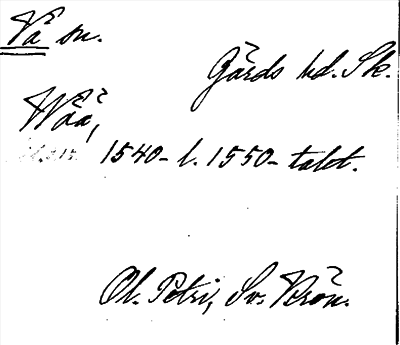 Vä sn.
Gärds hd. Sk.
Wåå,
1540- l. 1550-talet.
Ol. Petri, Sv. Krön.